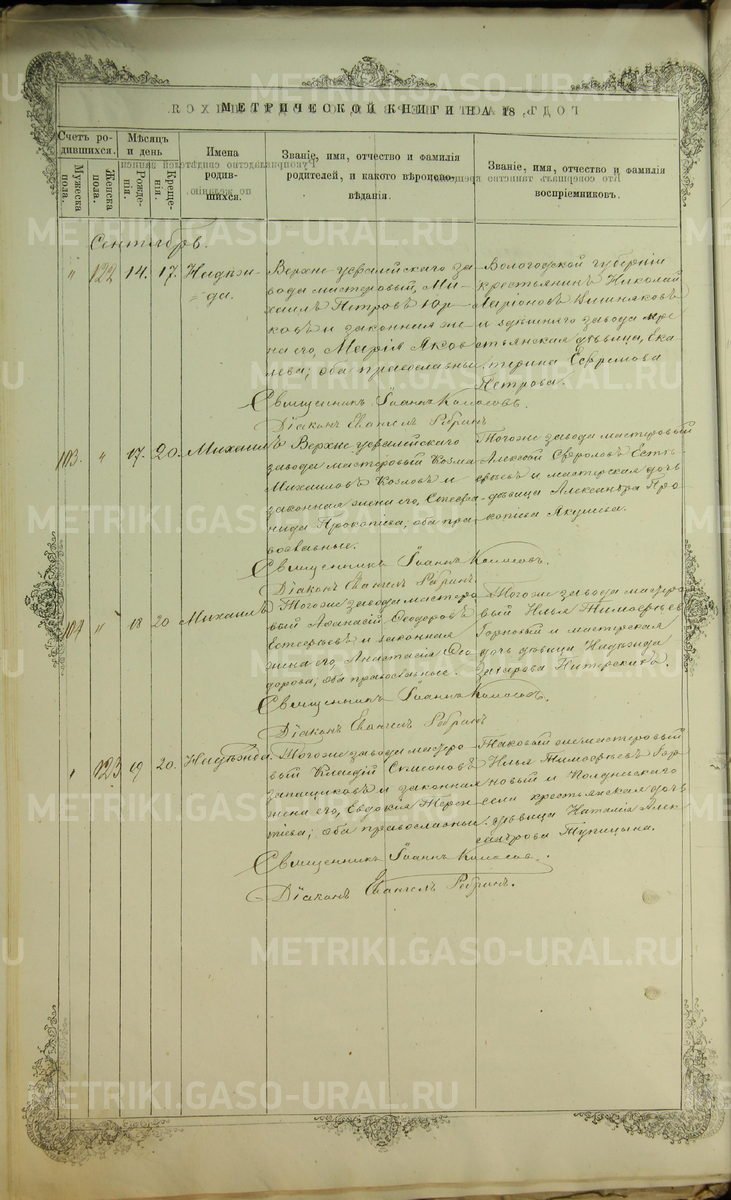 МЕТРИЧЕСКОЙ КНИГИ НА 18 ГОДЪ,
Счетъ родившихся.
Мужеска пола.
Женска пола.
Мѣсяцъ и день
Рожденія.
Крещенія.
Имена родившихся.
Званіе, имя, отчество и фамилія родителей, и какого вѣроисповѣданія.
Званіе, имя, отчество и фамилія воспріемниковъ.
Сентябрь.
" 122 14. 17. Надежда.
Верхне-уфалейскаго завода мастеровый, Михаилъ Петровъ
и законная жена его, Марія Яковлева; оба православные.
Вологодской губерніи крестьянинъ Николай Ларіоновъ Вишняковъ
и здѣшняго завода крестьянская дѣвица, Екатерина Ефремова Петрова.
Священникъ Іоаннъ Комасовъ.
Діаконъ Евангелъ Ребринъ
103. " 17. 20. Михаилъ
Верхне-уфалейскаго завода мастеровый Козма Михаиловъ Козловъ и
законная жена его, Прокопьева; оба православные.
Тогоже завода мастеровый Алексѣй Фроловъ
и мастерская дочь дѣвица Александра Прокопіева
Священникъ Іоаннъ Комасовъ.
Діаконъ Евангелъ Ребринъ.
104 " 18 20 Михаилъ
Тогоже завода мастеровый Аѳанасій Ѳеодоровъ
и законная жена его, Анастасія Ѳеодорова; оба православные.
Тогоже завода мастеровый Илья Тимоѳеевъ
и мастерская дочь дѣвица Надежда Захарова
Священникъ Іоаннъ Комасовъ.
Діаконъ Евангелъ Ребринъ
" 123 19 20. Надежда.
Тогоже завода мастеровый Симеоновъ
и законная жена его, Евдокія Терентіева; оба православные.
Таковый же мастеровый Илья Тимоѳеевъ
и Полдневскаго села крестьянская дочь дѣвица Наталія Александрова Тупицына.
Священникъ Іоаннъ Комасовъ.
Діаконъ Евангелъ Ребринъ.
METRIKI.GASO-URAL.RU